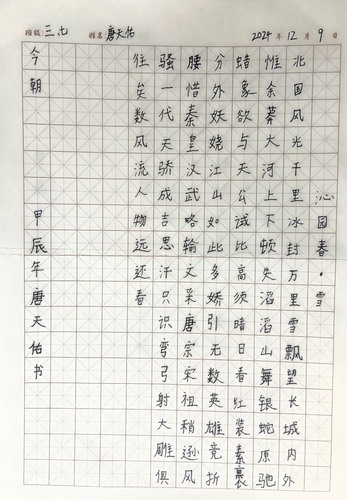 班级:三七 姓名:唐天佑 2024年12月9日
沁园春·雪
北国风光千里冰封万里雪飘望长城内外
惟余莽大河上下顿失滔滔山舞银蛇原驰
蜡象欲与天公诚比高须晴日春红装素裹
分外妖娆江山如此多娇引无数英雄竞折
腰惜秦皇汉武略输文采唐宗宋祖稍逊风
骚一代天骄成吉思汗只识弯弓射大雕俱
往矣数风流人物远还看
今朝 甲辰年唐天佑书